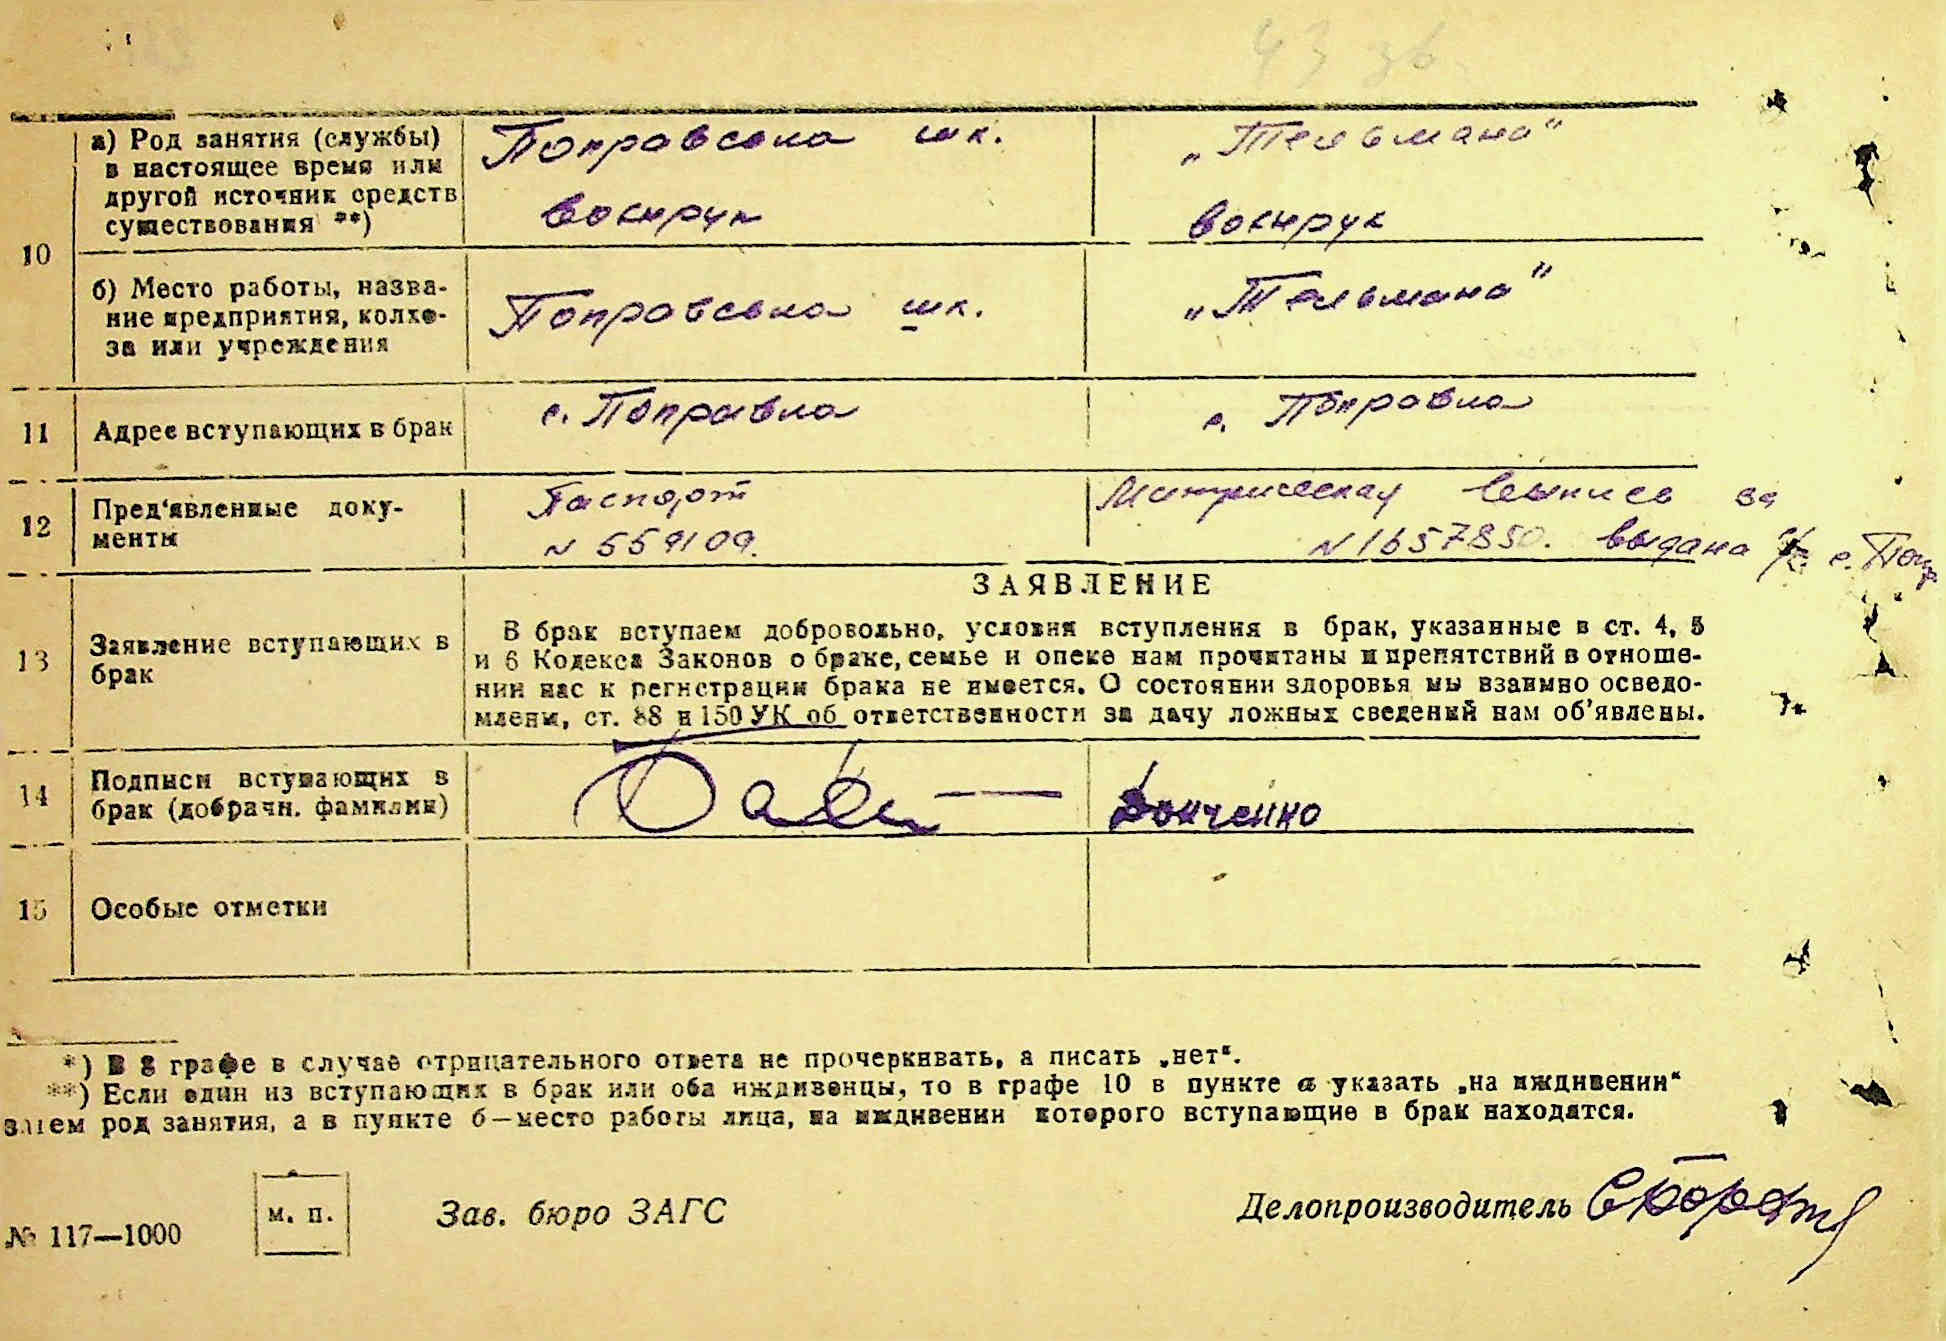 43 зв
а) Род занятия (службы)
в настоящее время или
другой источник средств
существования **)
Поправсока шк.
„Тельмана"
10
б) Место работы, назва-
ние предприятия, колхо-
за или учреждения
Поправсока шк.
„Тельмана"
11
Адрес вступающих в брак
с. Поправка
с. Поправка
12
Пред'явленные доку-
менты
Паспорт
N 559109.
Метрическая выпись за
N 1657850. выдана с/с с.
13
Заявление вступающих в
брак
ЗАЯВЛЕНИЕ
В брак вступаем добровольно, условия вступления в брак, указанные в ст. 4, 5
и 6 Кодекса Законов о браке, семье и опеке нам прочитаны и препятствий в отноше-
нии нас к регистрации брака не имеется. О состоянии здоровья мы взаимно осведо-
млены, ст. 88 и 150 УК об ответственности за дачу ложных сведений нам об'явлены.
14
Подписи вступающих в
брак (добрачн. фамилии)
15
Особые отметки
*) В 8 графе в случае отрицательного ответа не прочеркивать, а писать „нет“.
**) Если один из вступающих в брак или оба иждивенцы, то в графе 10 в пункте а указать „на иждивении“
затем род занятия, а в пункте б—место работы лица, на иждивении которого вступающие в брак находятся.
№ 117—1000
м. п.
Зав. бюро ЗАГС
Делопроизводитель